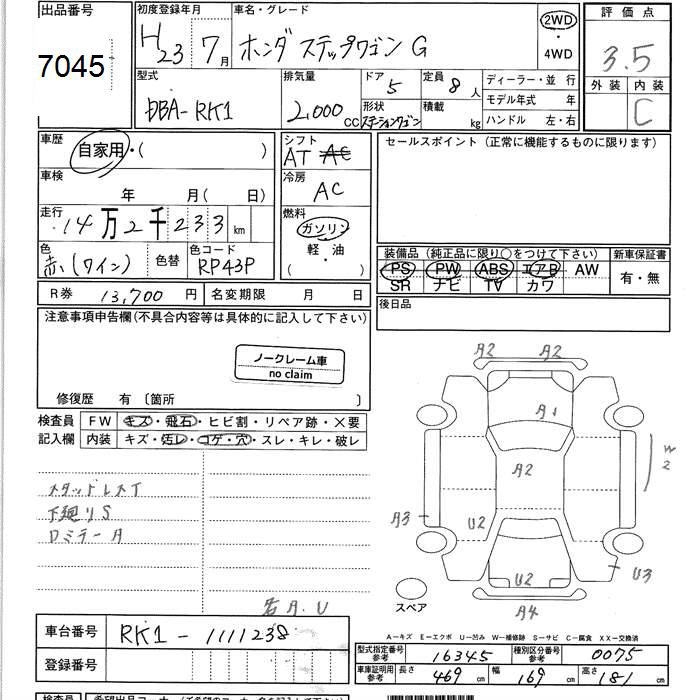 出品番号 初度登録年月 車名・グレード 2WD ・ 4WD 評価点
7045 H23 7月 ホンダ ステップワゴン G 3.5
型式 排気量 ドア 定員 ディーラー・並 行 外装 内装
DBA-RK1 2,000 CC 5 8人 モデル年式 年 C
形状 ステーションワゴン 積載 kg ハンドル 左・右
車歴 自家用・( ) シフト AT AC セールスポイント (正常に機能するものに限ります)
車検 年 月( 日) 冷房 AC
走行 14万2千233km 燃料 ガソリン 軽・油 ( )
色 赤(ワイン) 色替 色コード RP43P
装備品 (純正品に限り○をつけて下さい) 新車保証書
PS PW ABS エアB AW 有・無
SR ナビ TV カワ
R券 13,700 円 名変期限 月 日 後日品
注意事項申告欄(不具合内容等は具体的に記入して下さい)
ノークレーム車
no claim
修復歴 有 〔箇所 〕
検査員 FW キズ・飛石・ヒビ割・リペア跡・×要
記入欄 内装 キズ・汚レ・コゲ・穴・スレ・キレ・破レ
A2 A2
A1
A2
W2
スタッドレスT
下廻りS
A3 U2
U2 U3
スペア A4
A-キズ E-エクボ U-凹み W-補修跡 S-サビ C-腐食 XX-交換済
車台番号 RK1-1111238
登録番号
型式指定番号 参考 16345 種別区分番号 参考 0075
車庫証明用 参考 長さ 469 cm 幅 169 cm 高さ 181 cm